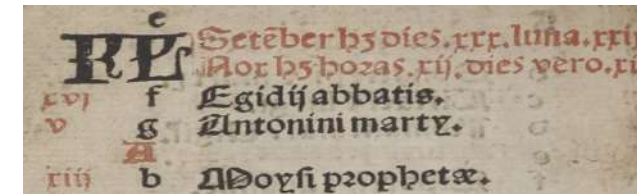 e
KL Setēber hꝫ dies.xxx.luna.xxi
Nox hꝫ horas.xij.dies vero.xi
xvj f Egidij abbatis.
v g Antonini martyꝝ.
A
xiij b Moysi prophetæ.